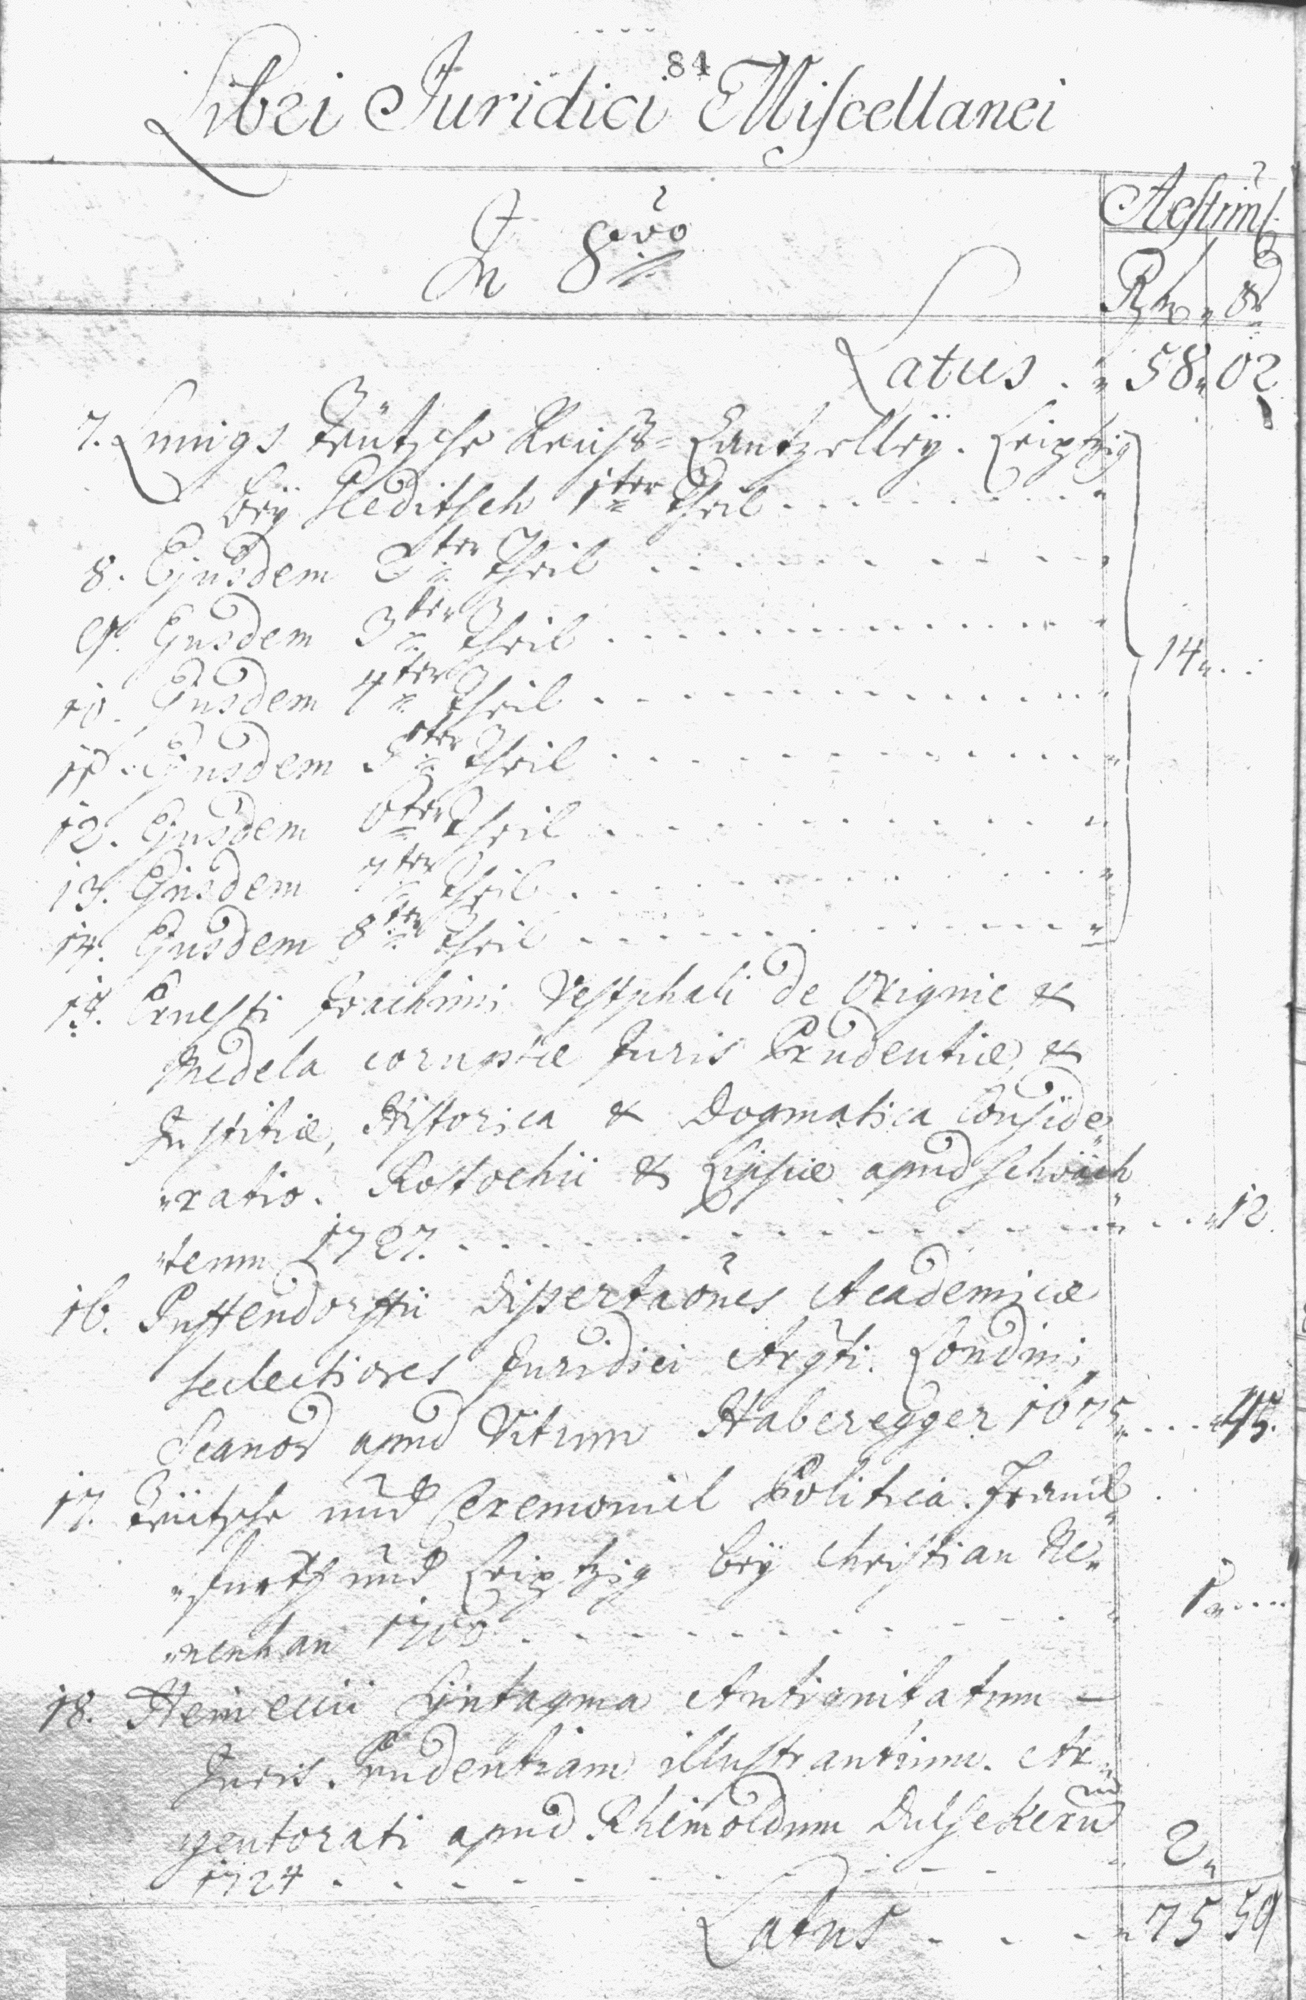 84
Libri Juridici Miscellanei
In 8vo
Aestim:
Rh. d
Latus . 58 02
7. Lunigs Teütsche Reichs-Cantzelleÿ. Leiptzig
beÿ Gleditsch 1ter Theil
8. Ejusdem 2ter Theil
9. Ejusdem 3ter Theil
10. Ejusdem 4ter Theil 14
11. Ejusdem 5ter Theil
12. Ejusdem 6ter Theil
13. Ejusdem 7ter Theil
14. Ejusdem 8ter Theil
15. Ernesti Joachimi Vestphali de Origine &
Medela coruptæ Juris Prudentiæ, &
Justitiæ, Historica & Dogmatica Conside
ratio. Rostochii & Lipsiæ apud Schwäch
tenm 1727. 12
16. Puffendorffii Dissertaões Academicæ
selectiores Juridici Argti. Londini
Scanor apud Vitum Haberegger 1675 45.
17. Teütsche und Ceremoniel Politica. Franck
furth und Leiptzig beÿ Christian We
nenhan 1700 1
18. Heineccii Syntagma Antiquitatum
Juris Prudentiam illustrantium. Ar
gentorati apud Rhinoldum Dulsekerum
1724 2
Latus 75 59